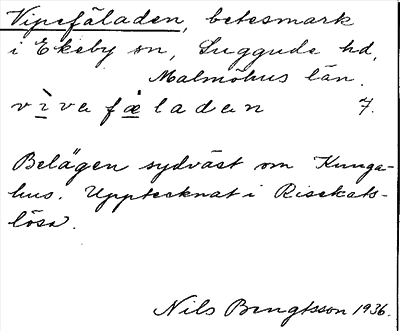 Vipefäladen, betesmark
i Ekeby sn, Luggude hd,
Malmöhus län.
v ì va f æ ladan 7.
Belägen sydväst om Kunga-
hus. Upptecknat i Risekats-
lösa.
Nils Bengtsson 1936.